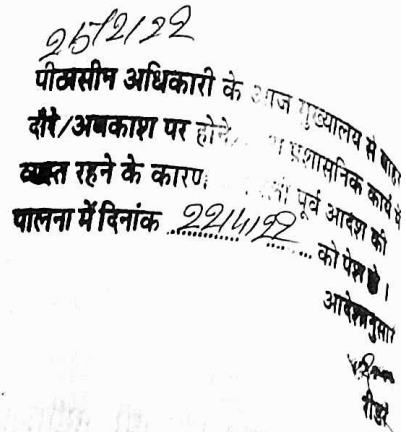 25/2/22
पीठासीन अधिकारी के आज मुख्यालय से बाहर
दौरे/अवकाश पर होने/ प्रशासनिक कार्य में
व्यस्त रहने के कारण पूर्व आदेश की
पालना में दिनांक 22/4/22 को पेश हो।
आदेशानुसार
रीडर